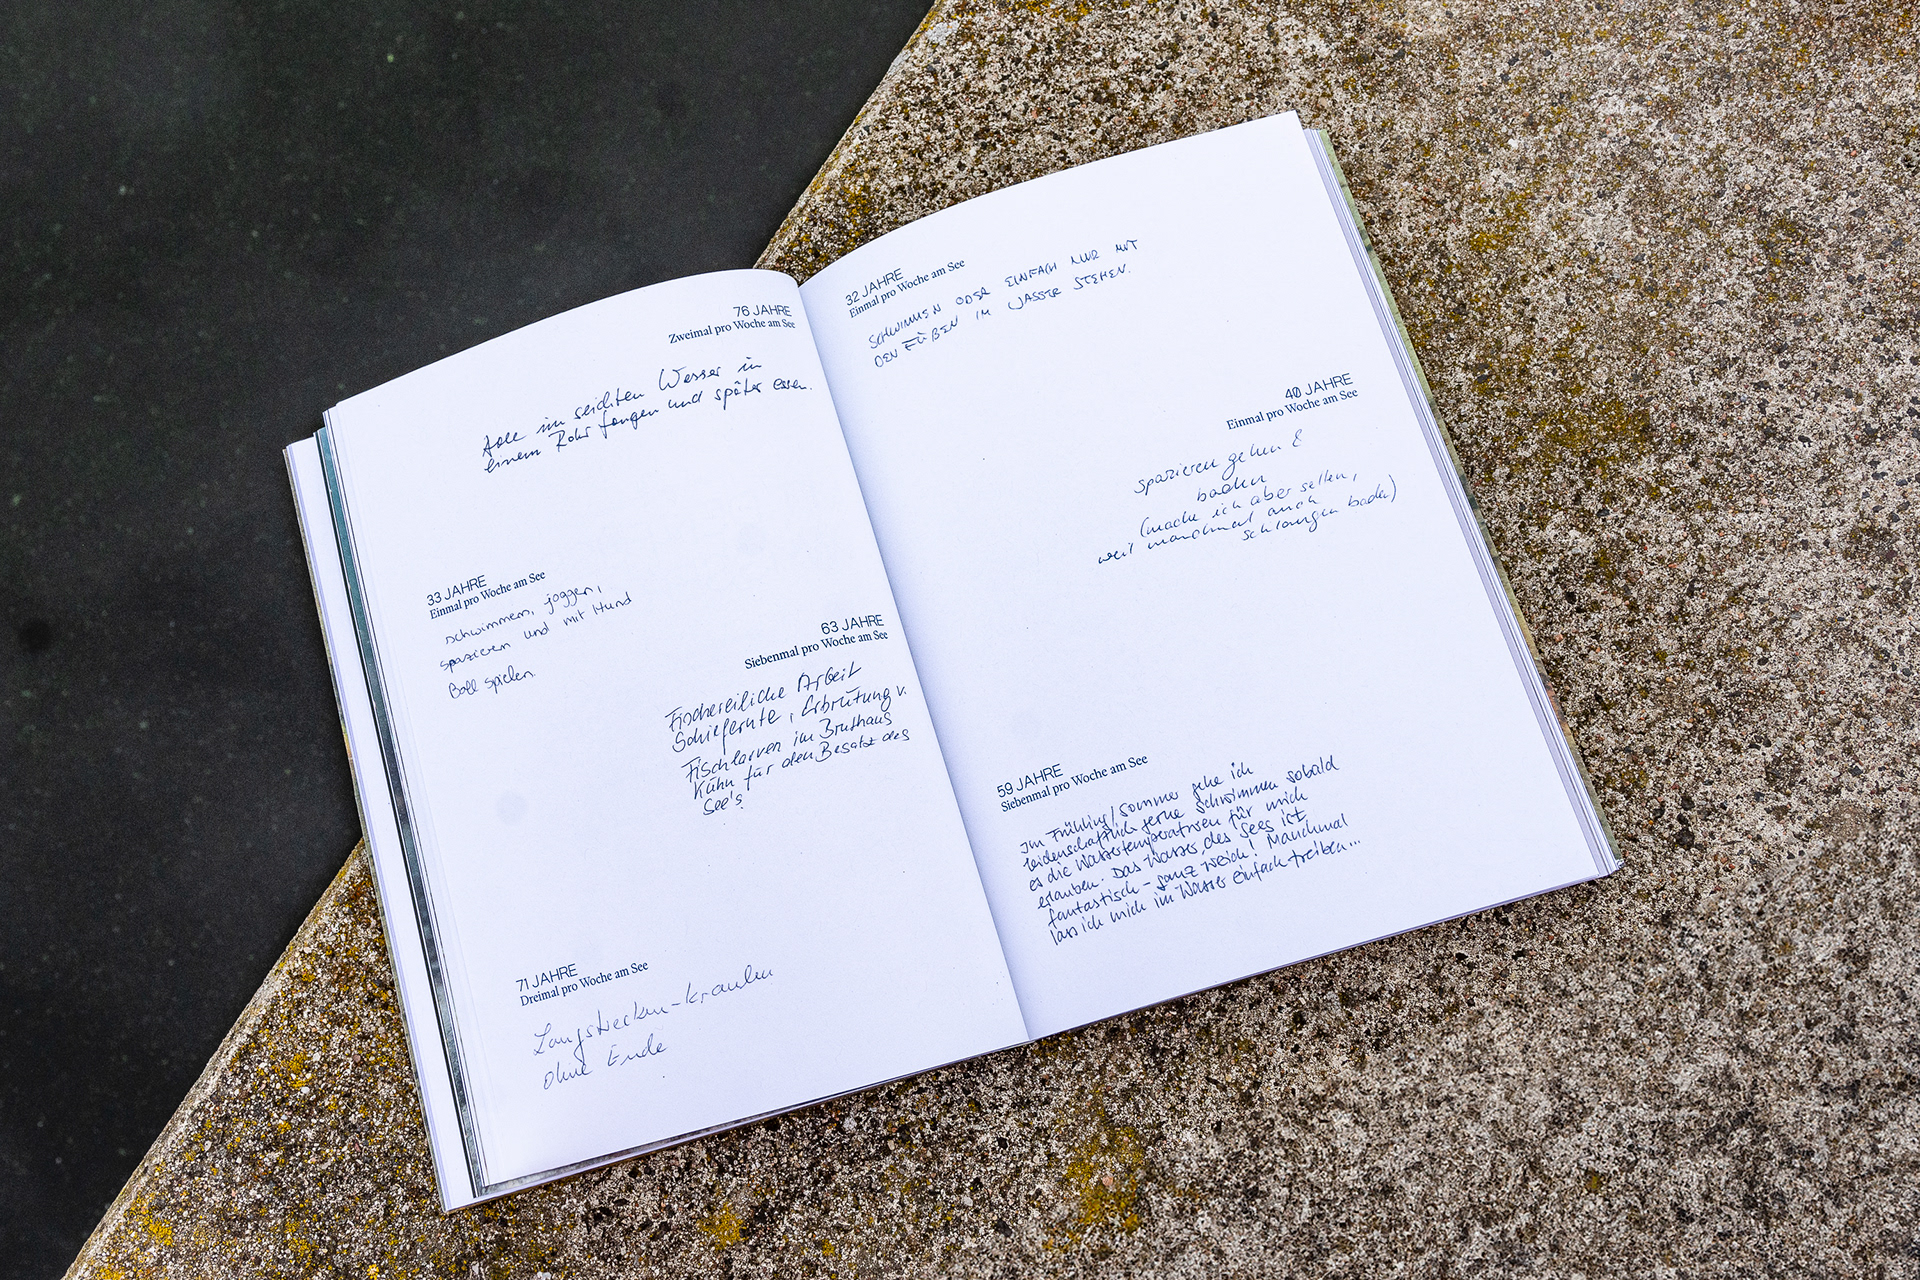 76 JAHRE
Zweimal pro Woche am See
Aale im seichten Wasser in
einem Rohr fangen und später essen.
33 JAHRE
Einmal pro Woche am See
schwimmen, joggen,
spazieren und mit Hund
Ball spielen.
63 JAHRE
Siebenmal pro Woche am See
Fischereiliche Arbeit
Schilfernte, Erbrütung v.
Fischlarven im Bruthaus
Kühn für den Besatz des
See's
71 JAHRE
Dreimal pro Woche am See
Langstrecken-kraulen
ohne Ende
32 JAHRE
Einmal pro Woche am See
SCHWIMMEN ODER EINFACH NUR MIT
DEN FÜßEN IM WASSER STEHEN.
40 JAHRE
Einmal pro Woche am See
spazieren gehen &
baden
(mache ich aber selten,
weil manchmal auch
schlangen baden)
59 JAHRE
Siebenmal pro Woche am See
Im Frühling/Sommer gehe ich
leidenschaftlich gerne schwimmen sobald
es die Wassertemperaturen für mich
erlauben. Das Wasser des Sees ist
fantastisch - ganz weich! Manchmal
lass ich mich im Wasser einfach treiben...